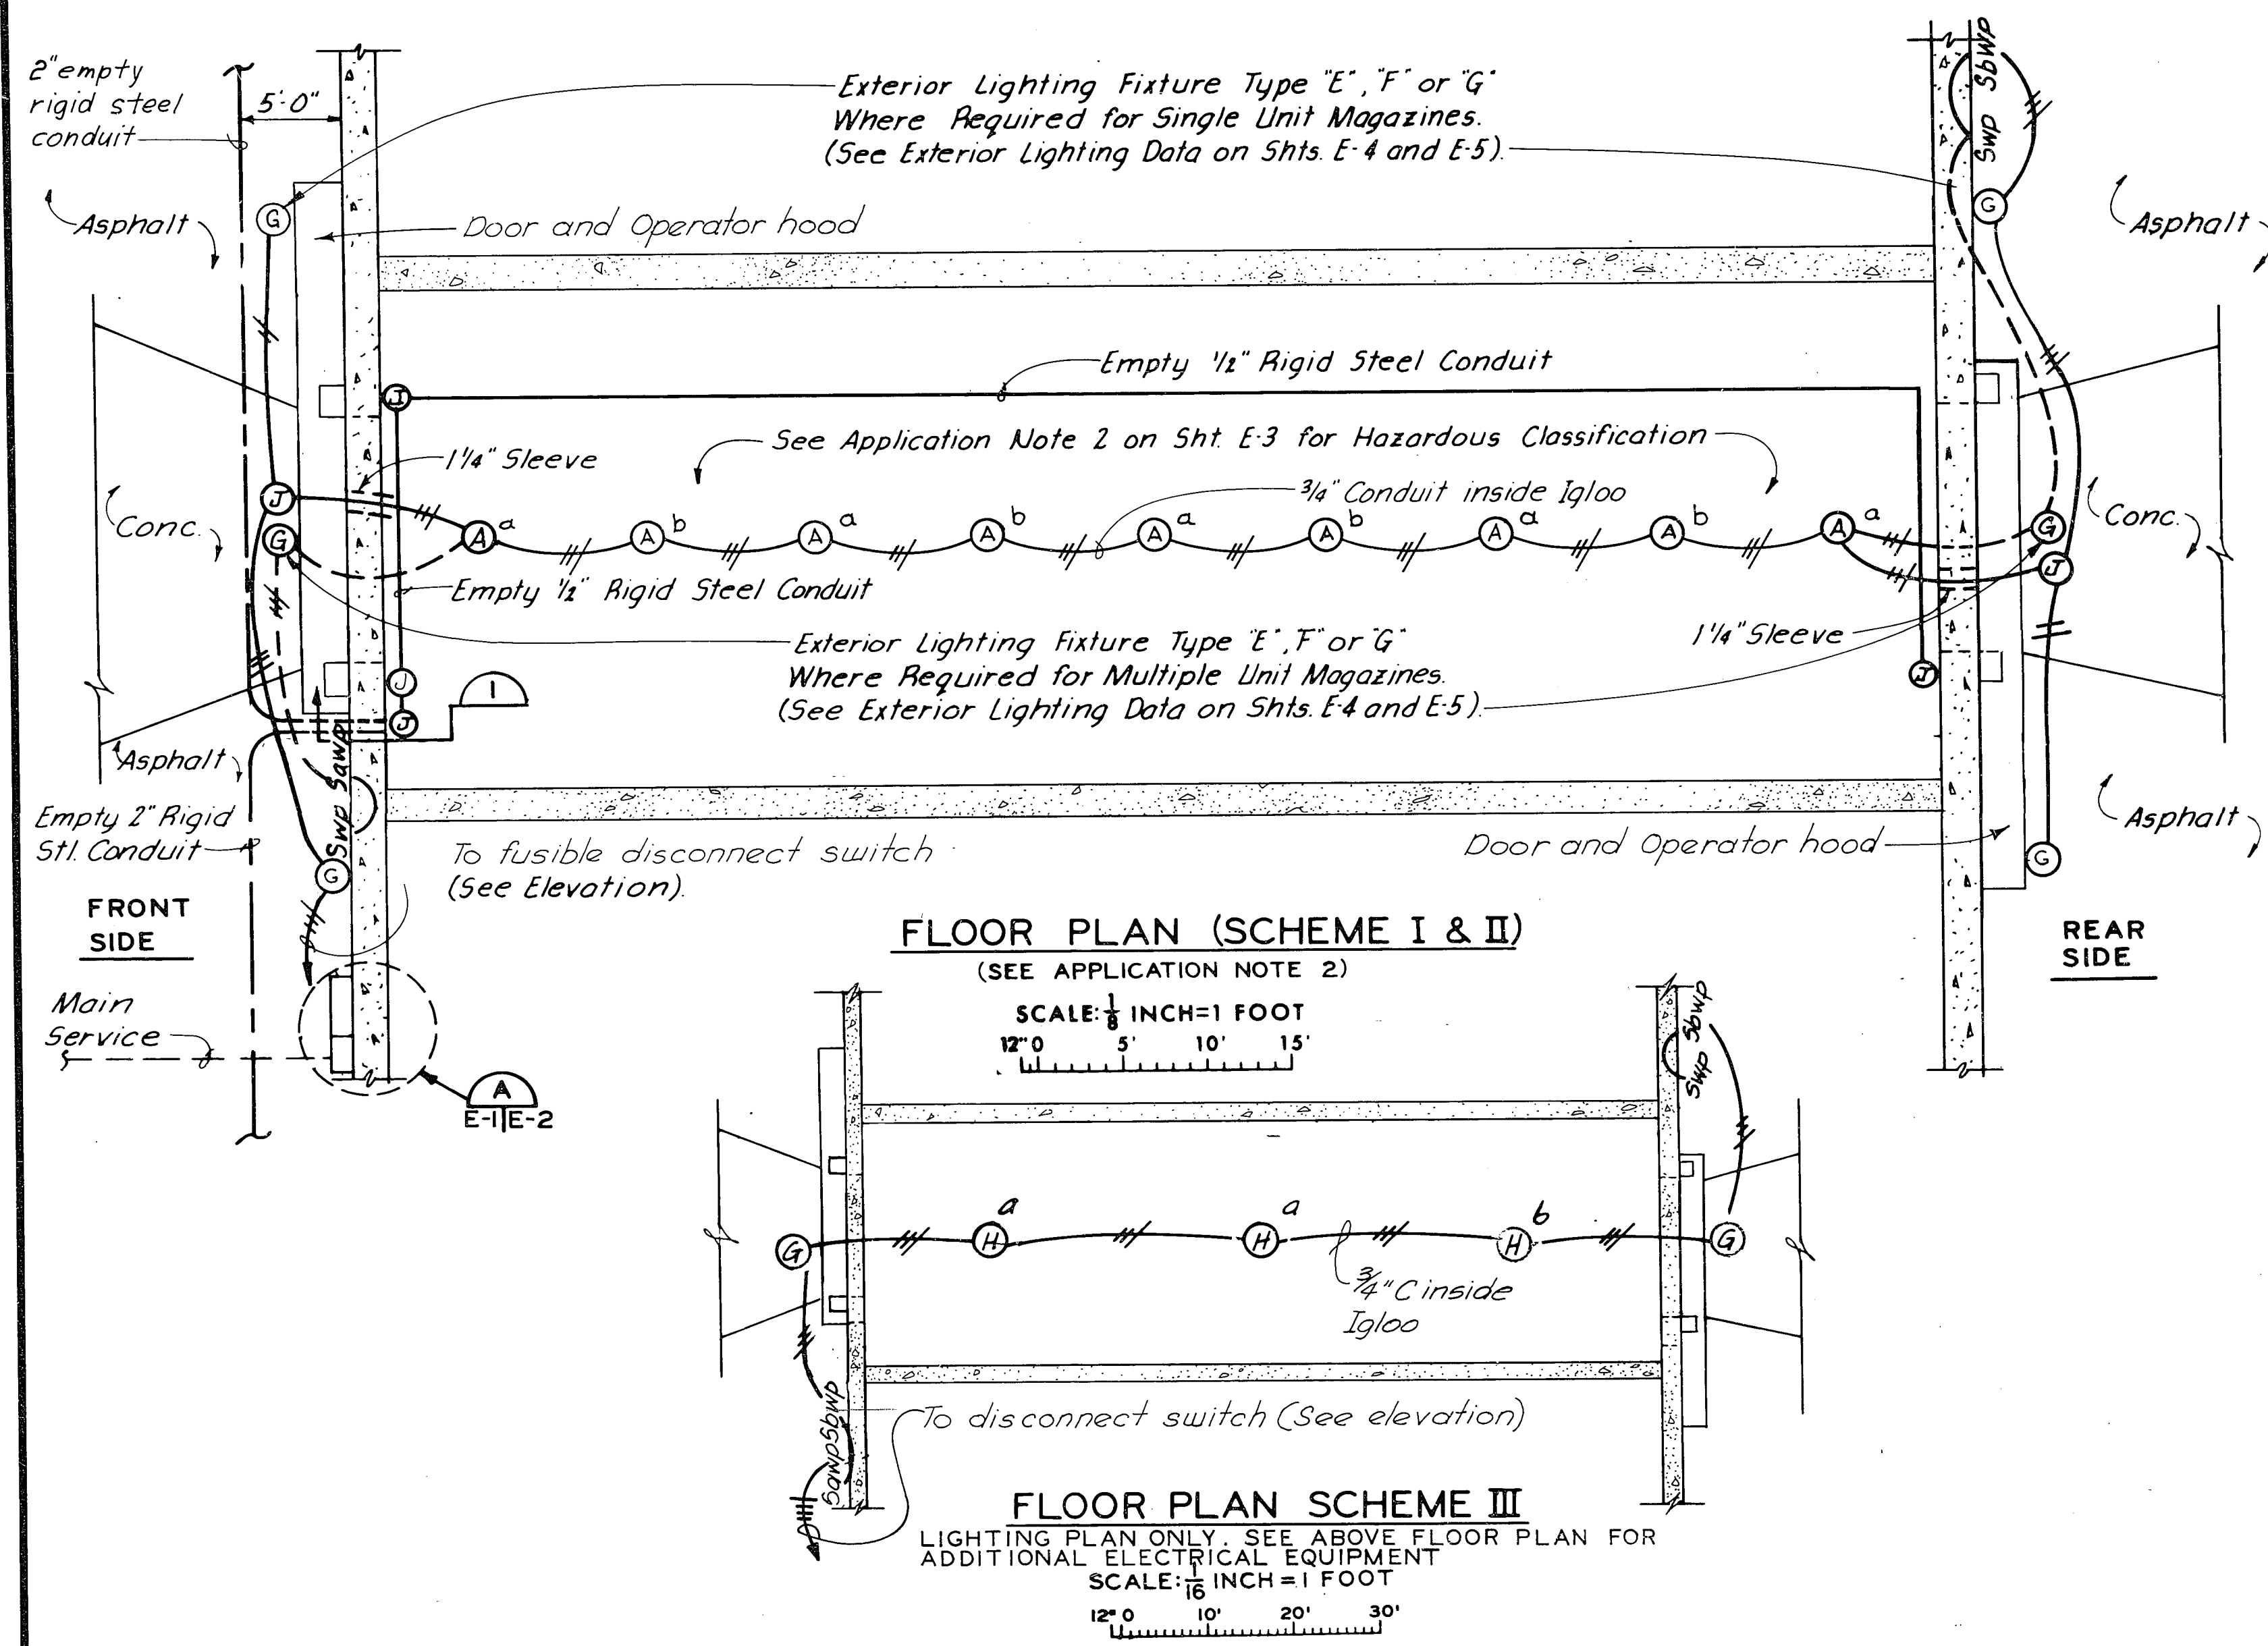 2" empty
rigid steel
conduit
5'-0"
Exterior Lighting Fixture Type "E", "F" or "G"
Where Required for Single Unit Magazines.
(See Exterior Lighting Data on Shts. E-4 and E-5).
Swp Sbwp
G
G
Asphalt
Asphalt
Door and Operator hood
Empty 1/2" Rigid Steel Conduit
J
See Application Note 2 on Sht. E-3 for Hazardous Classification
1 1/4" Sleeve
3/4" Conduit inside Igloo
J
G
Conc.
A a
A b
A a
A b
A a
A b
A a
A b
A a
G
J
Conc.
Empty 1/2" Rigid Steel Conduit
Exterior Lighting Fixture Type "E", "F" or "G"
Where Required for Multiple Unit Magazines.
(See Exterior Lighting Data on Shts. E-4 and E-5).
1 1/4" Sleeve
J
J
J
1
Asphalt
Swp Sawp
Empty 2" Rigid
Stl. Conduit
G
To fusible disconnect switch
(See Elevation).
Door and Operator hood
G
Asphalt
FRONT
SIDE
REAR
SIDE
FLOOR PLAN (SCHEME I & II)
(SEE APPLICATION NOTE 2)
SCALE: 1/8 INCH=1 FOOT
12" 0 5' 10' 15'
Main
Service
A
E-1 E-2
Swp Sbwp
G
H a
H a
H b
G
3/4" C inside
Igloo
To disconnect switch (See elevation)
FLOOR PLAN SCHEME III
LIGHTING PLAN ONLY. SEE ABOVE FLOOR PLAN FOR
ADDITIONAL ELECTRICAL EQUIPMENT
SCALE: 1/16 INCH=1 FOOT
12" 0 10' 20' 30'